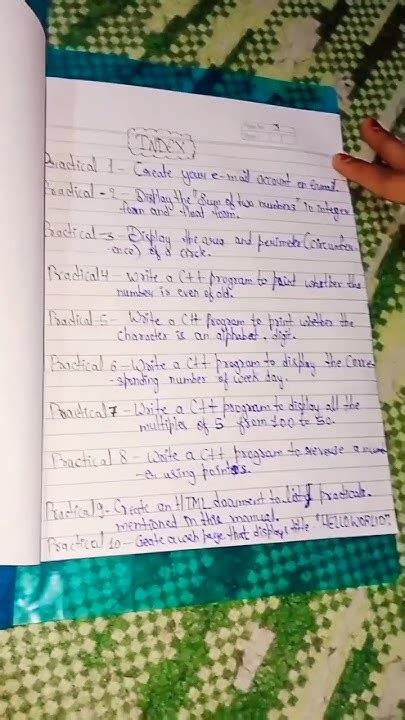 INDEX
Practical 1 - Create your e-mail account on Gmail.
Practical - 2 - Display the "Sum of two numbers" in integer
form and float form.
Practical - 3 - Display the area and perimeter (circumfer-
ence) of a circle.
Practical 4 - Write a C++ program to print whether the
number is even of od.
Practical 5 - Write a C++ Program to print whether the
character is an alphabet. digit.
Practical 6 - Write a C++ program to display the Corre-
-sponding number of week day.
Practical 7 - Write a C++ program to display all the
multiples of 5 from 100 to 50.
Practical 8 - Write a C++ program to reverse a numb
-er using pointers.
Practical 9 - Create an HTML document to list practicals.
mentioned in this manual.
Practical 10 - Create a web page that displays title "HELLO WORLD".